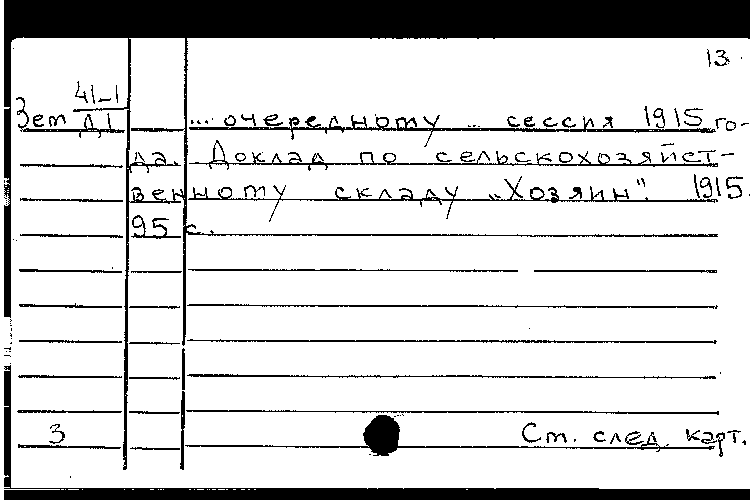 13.
Зет 41-1
Д1
... очередному .. сессия 1915 го-
да. Доклад по сельскохозяйст-
венному складу „Хозяин". 1915.
95 с.
3
Ст. след. карт.